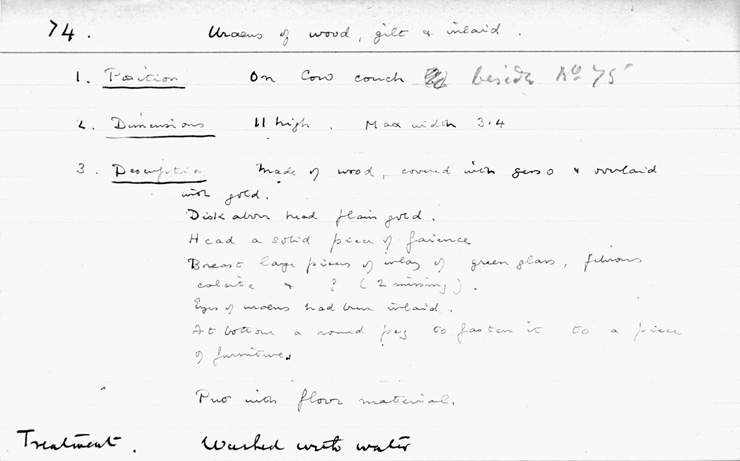 74. Uraeus of wood, gilt & inlaid.
1. Position On Cow couch beside No 75
2. Dimensions 11 high. Max width 3.4
3. Description Made of wood, covered with gesso & overlaid
with gold.
Disk above head plain gold.
Head a solid piece of faience
Breast large pieces of inlay of green glass, fibrous
calcite & ? (2 missing).
Eyes of uraeus had been inlaid.
At bottom a round peg to fasten it to a piece
of furniture.
Put with floor material.
Treatment. Washed with water